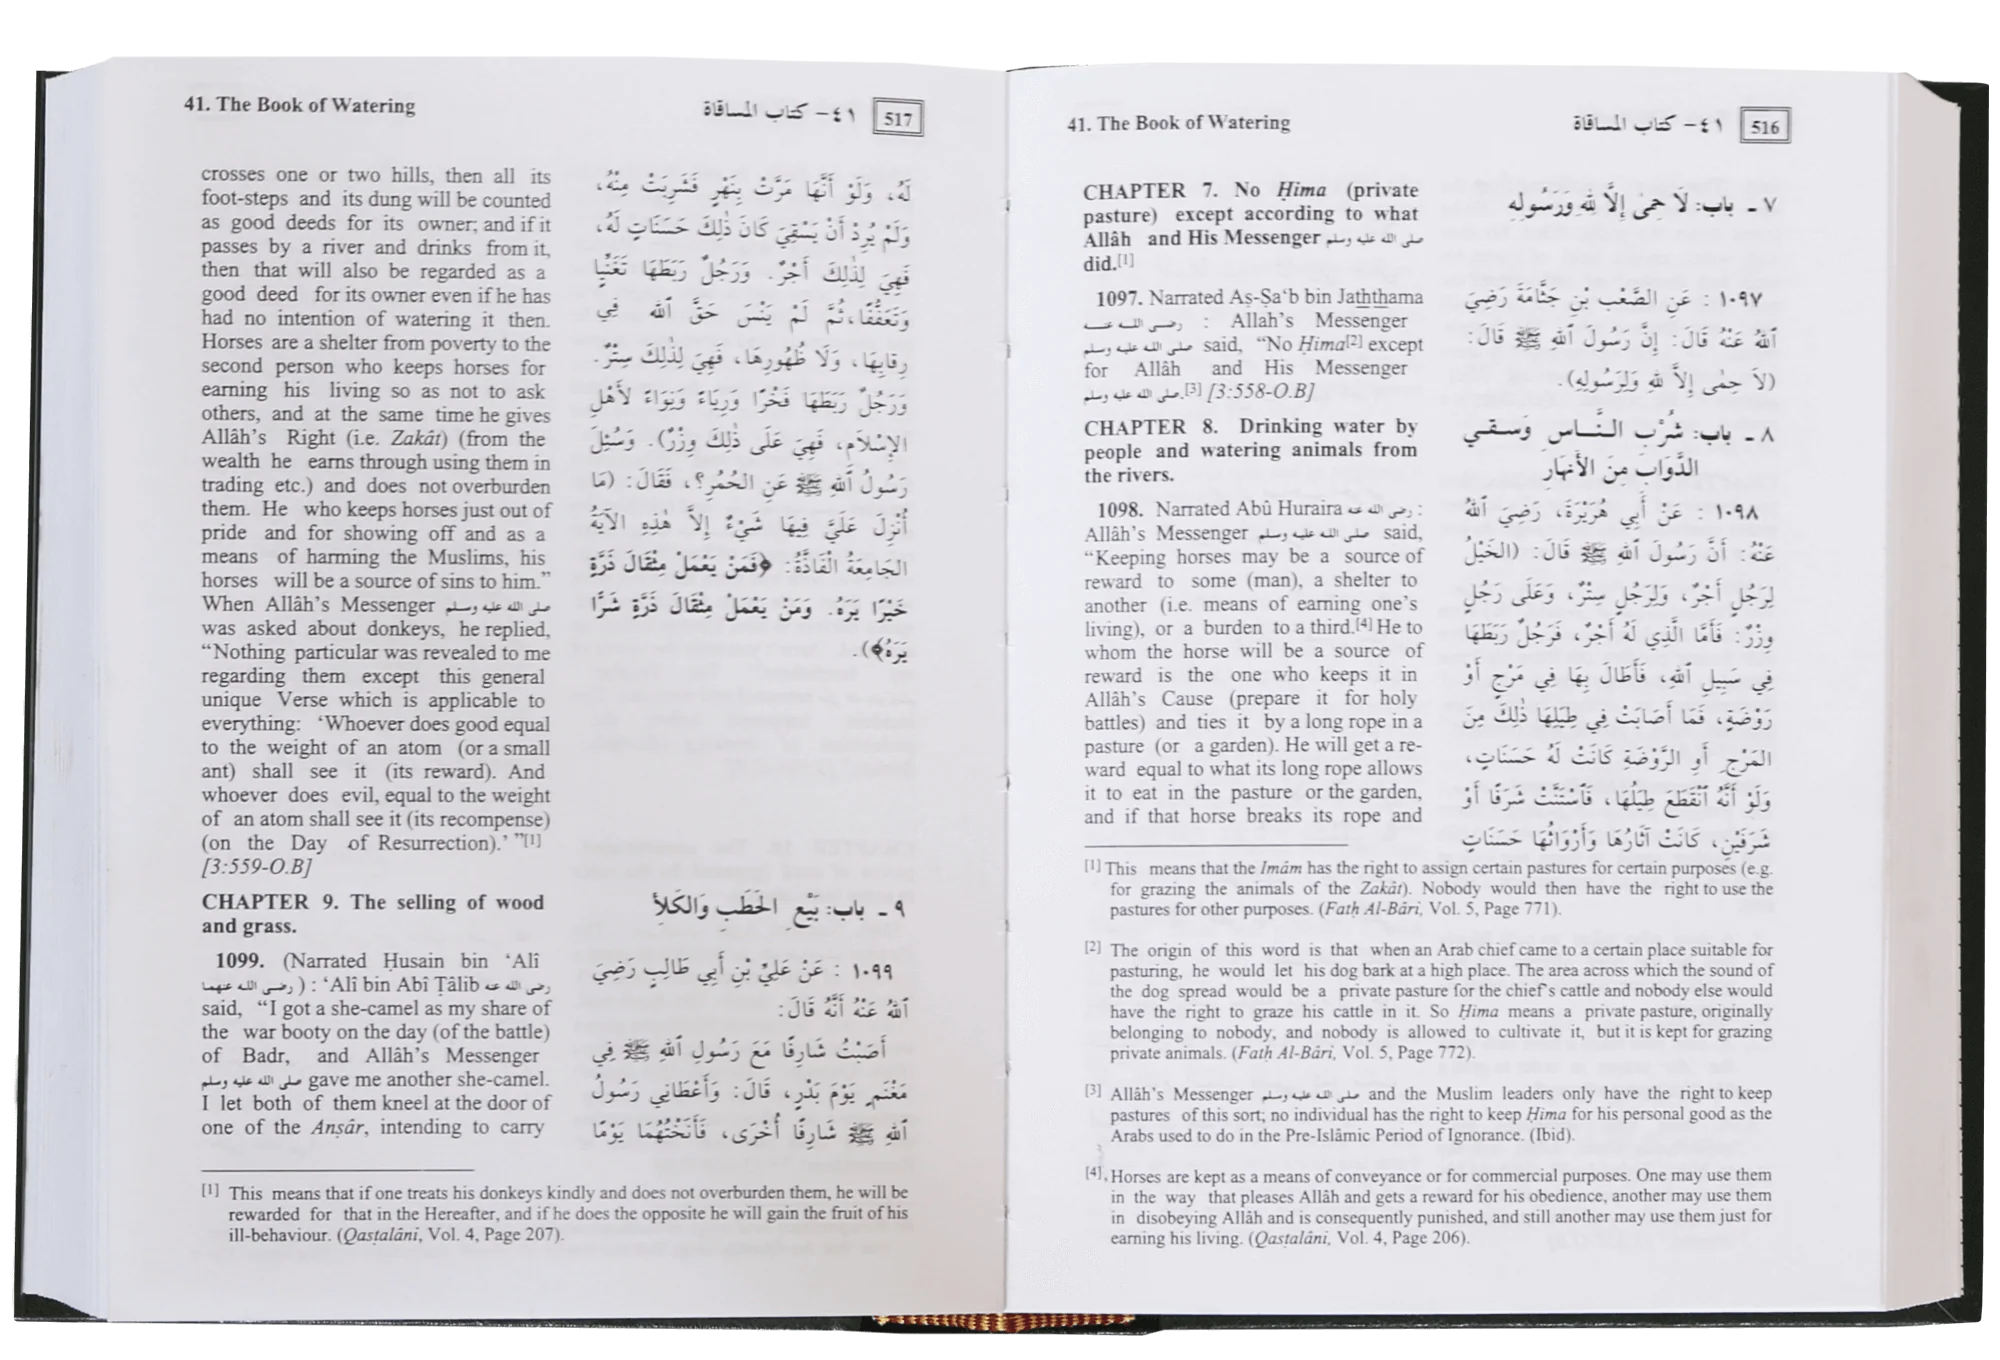 41. The Book of Watering
٤١- كتاب المساقاة
516
CHAPTER 7. No Ḥima (private
pasture) except according to what
Allâh and His Messenger صلى الله عليه وسلم
did.[1]
1097. Narrated Aṣ-Ṣa‘b bin Jaththama
رضى الله عنه : Allah’s Messenger
صلى الله عليه وسلم said, “No Ḥima[2] except
for Allâh and His Messenger
صلى الله عليه وسلم.[3] [3:558-O.B]
CHAPTER 8. Drinking water by
people and watering animals from
the rivers.
1098. Narrated Abû Huraira رضى الله عنه :
Allâh’s Messenger صلى الله عليه وسلم said,
“Keeping horses may be a source of
reward to some (man), a shelter to
another (i.e. means of earning one’s
living), or a burden to a third.[4] He to
whom the horse will be a source of
reward is the one who keeps it in
Allâh’s Cause (prepare it for holy
battles) and ties it by a long rope in a
pasture (or a garden). He will get a re-
ward equal to what its long rope allows
it to eat in the pasture or the garden,
and if that horse breaks its rope and
٧ ـ باب: لَا حِمَى إِلاَّ لله وَرَسُولِهِ
١٠٩٧ : عَنِ الصَّعْبِ بْنِ جَثَّامَةَ رَضِيَ
ٱللهُ عَنْهُ قَالَ: إِنَّ رَسُولَ ٱللهِ ﷺ قَالَ:
(لاَ حِمْى إِلاَّ للهِ وَلِرَسُولِهِ).
٨ ـ باب: شُرْبِ النَّـاسِ وَسـقـي
الدَّوَابِّ مِنَ الأَنهَارِ
١٠٩٨ : عَنْ أَبِي هُرَيْرَةَ، رَضِيَ ٱللهُ
عَنْهُ: أَنَّ رَسُولَ ٱللهِ ﷺ قَالَ: (الخَيْلُ
لِرَجُلٍ أَجْرٌ، وَلِرَجُلٍ سِتْرٌ، وَعَلَى رَجُلٍ
وِزْرٌ: فَأَمَّا الَّذِي لَهُ أَجْرٌ، فَرَجُلٌ رَبَطَهَا
فِي سَبِيلِ ٱللهِ، فَأَطَالَ بِهَا فِي مَرْجٍ أَوْ
رَوْضَةٍ، فَمَا أَصَابَتْ فِي طِيَلِهَا ذٰلِكَ مِنَ
المَرْجِ أَوِ الرَّوْضَةِ كَانَتْ لَهُ حَسَنَاتٍ،
وَلَوْ أَنَّهُ ٱنْقَطَعَ طِيَلُهَا، فَٱسْتَنَّتْ شَرَفًا أَوْ
شَرَفَيْنِ، كَانَتْ آثَارُهَا وَأَرْوَاثُهَا حَسَنَاتٍ
[1] This means that the Imâm has the right to assign certain pastures for certain purposes (e.g.
for grazing the animals of the Zakât). Nobody would then have the right to use the
pastures for other purposes. (Fatḥ Al-Bâri, Vol. 5, Page 771).
[2] The origin of this word is that when an Arab chief came to a certain place suitable for
pasturing, he would let his dog bark at a high place. The area across which the sound of
the dog spread would be a private pasture for the chief’s cattle and nobody else would
have the right to graze his cattle in it. So Ḥima means a private pasture, originally
belonging to nobody, and nobody is allowed to cultivate it, but it is kept for grazing
private animals. (Fatḥ Al-Bâri, Vol. 5, Page 772).
[3] Allâh’s Messenger صلى الله عليه وسلم and the Muslim leaders only have the right to keep
pastures of this sort; no individual has the right to keep Ḥima for his personal good as the
Arabs used to do in the Pre-Islâmic Period of Ignorance. (Ibid).
[4] Horses are kept as a means of conveyance or for commercial purposes. One may use them
in the way that pleases Allâh and gets a reward for his obedience, another may use them
in disobeying Allâh and is consequently punished, and still another may use them just for
earning his living. (Qasṭalâni, Vol. 4, Page 206).
41. The Book of Watering
٤١- كتاب المساقاة
517
crosses one or two hills, then all its
foot-steps and its dung will be counted
as good deeds for its owner; and if it
passes by a river and drinks from it,
then that will also be regarded as a
good deed for its owner even if he has
had no intention of watering it then.
Horses are a shelter from poverty to the
second person who keeps horses for
earning his living so as not to ask
others, and at the same time he gives
Allâh’s Right (i.e. Zakât) (from the
wealth he earns through using them in
trading etc.) and does not overburden
them. He who keeps horses just out of
pride and for showing off and as a
means of harming the Muslims, his
horses will be a source of sins to him.”
When Allâh’s Messenger صلى الله عليه وسلم
was asked about donkeys, he replied,
“Nothing particular was revealed to me
regarding them except this general
unique Verse which is applicable to
everything: ‘Whoever does good equal
to the weight of an atom (or a small
ant) shall see it (its reward). And
whoever does evil, equal to the weight
of an atom shall see it (its recompense)
(on the Day of Resurrection).’ ”[1]
[3:559-O.B]
CHAPTER 9. The selling of wood
and grass.
1099. (Narrated Ḥusain bin ‘Alî
رضى الله عنهما) : ‘Alî bin Abî Ṭâlib رضى الله عنه
said, “I got a she-camel as my share of
the war booty on the day (of the battle)
of Badr, and Allâh’s Messenger
صلى الله عليه وسلم gave me another she-camel.
I let both of them kneel at the door of
one of the Anṣâr, intending to carry
لَهُ، وَلَوْ أَنَّهَا مَرَّتْ بِنَهْرٍ فَشَرِبَتْ مِنْهُ،
وَلَمْ يُرِدْ أَنْ يَسْقِيَ كَانَ ذٰلِكَ حَسَنَاتٍ لَهُ،
فَهِيَ لِذٰلِكَ أَجْرٌ. وَرَجُلٌ رَبَطَهَا تَغَنِّيًا
وَتَعَفُّفًا، ثُمَّ لَمْ يَنْسَ حَقَّ ٱللهِ فِي
رِقابِهَا، وَلَا ظُهُورِهَا، فَهِيَ لِذٰلِكَ سِتْرٌ.
وَرَجُلٌ رَبَطَهَا فَخْرًا وَرِيَاءً وَنِوَاءً لأَهْلِ
الإِسْلَامِ، فَهِيَ عَلَى ذٰلِكَ وِزْرٌ). وَسُئِلَ
رَسُولُ ٱللهِ ﷺ عَنِ الحُمُرِ؟، فَقَالَ: (مَا
أُنْزِلَ عَلَيَّ فِيهَا شَيْءٌ إِلاَّ هٰذِهِ الآيَةُ
الجَامِعَةُ الْفَاذَّةُ: ﴿فَمَنْ يَعْمَلْ مِثْقَالَ ذَرَّةٍ
خَيْرًا يَرَهُ. وَمَنْ يَعْمَلْ مِثْقَالَ ذَرَّةٍ شَرًّا
يَرَهُ﴾).
٩ ـ باب: بَيْعِ الحَطَبِ وَالكَلأِ
١٠٩٩ : عَنْ عَلِيِّ بْنِ أَبِي طَالِبٍ رَضِيَ
ٱللهُ عَنْهُ أَنَّهُ قَالَ:
أَصَبْتُ شَارِفًا مَعَ رَسُولِ ٱللهِ ﷺ فِي
مَغْنَمِ يَوْمَ بَدْرٍ، قَالَ: وَأَعْطَانِي رَسُولُ
ٱللهِ ﷺ شَارِفًا أُخْرَى، فَأَنَخْتُهُمَا يَوْمًا
[1] This means that if one treats his donkeys kindly and does not overburden them, he will be
rewarded for that in the Hereafter, and if he does the opposite he will gain the fruit of his
ill-behaviour. (Qasṭalâni, Vol. 4, Page 207).